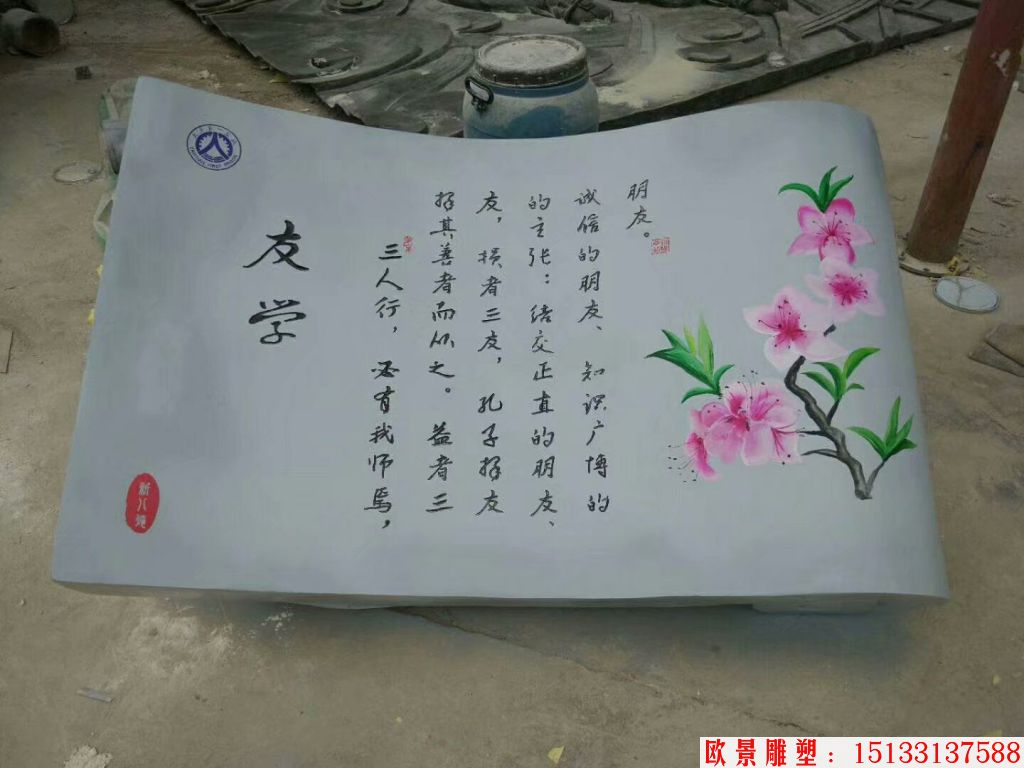 友学
三人行，必有我师焉，
择其善者而从之。益者三
友，损者三友，孔子择友
的主张：结交正直的朋友、
诚信的朋友、知识广博的
朋友。
新八
欧景雕塑：15133137588